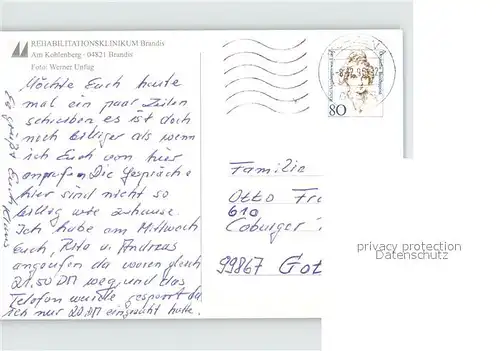 REHABILITATIONSKLINIKUM Brandis
Am Kohlenberg · 04821 Brandis
Foto: Werner
Möchte Euch heute
mal ein paar Zeilen
schreiben, es ist doch
noch billiger als wenn
ich Euch von hier
anrufen. Die Gespräche
hier sind nicht so
billig wie zuhause.
Ich habe am Mittwoch
Euch, Rita u. Andreas
angerufen da waren gleich
21,50 DM weg und das
Telefon wurde gesperrt da
ich nur 20,DM eingezahlt hatte.
es grüßt Euch Klaus
80
Familie
Otto Fra
610
Coburger
99867 Got
privacy protection
Datenschutz